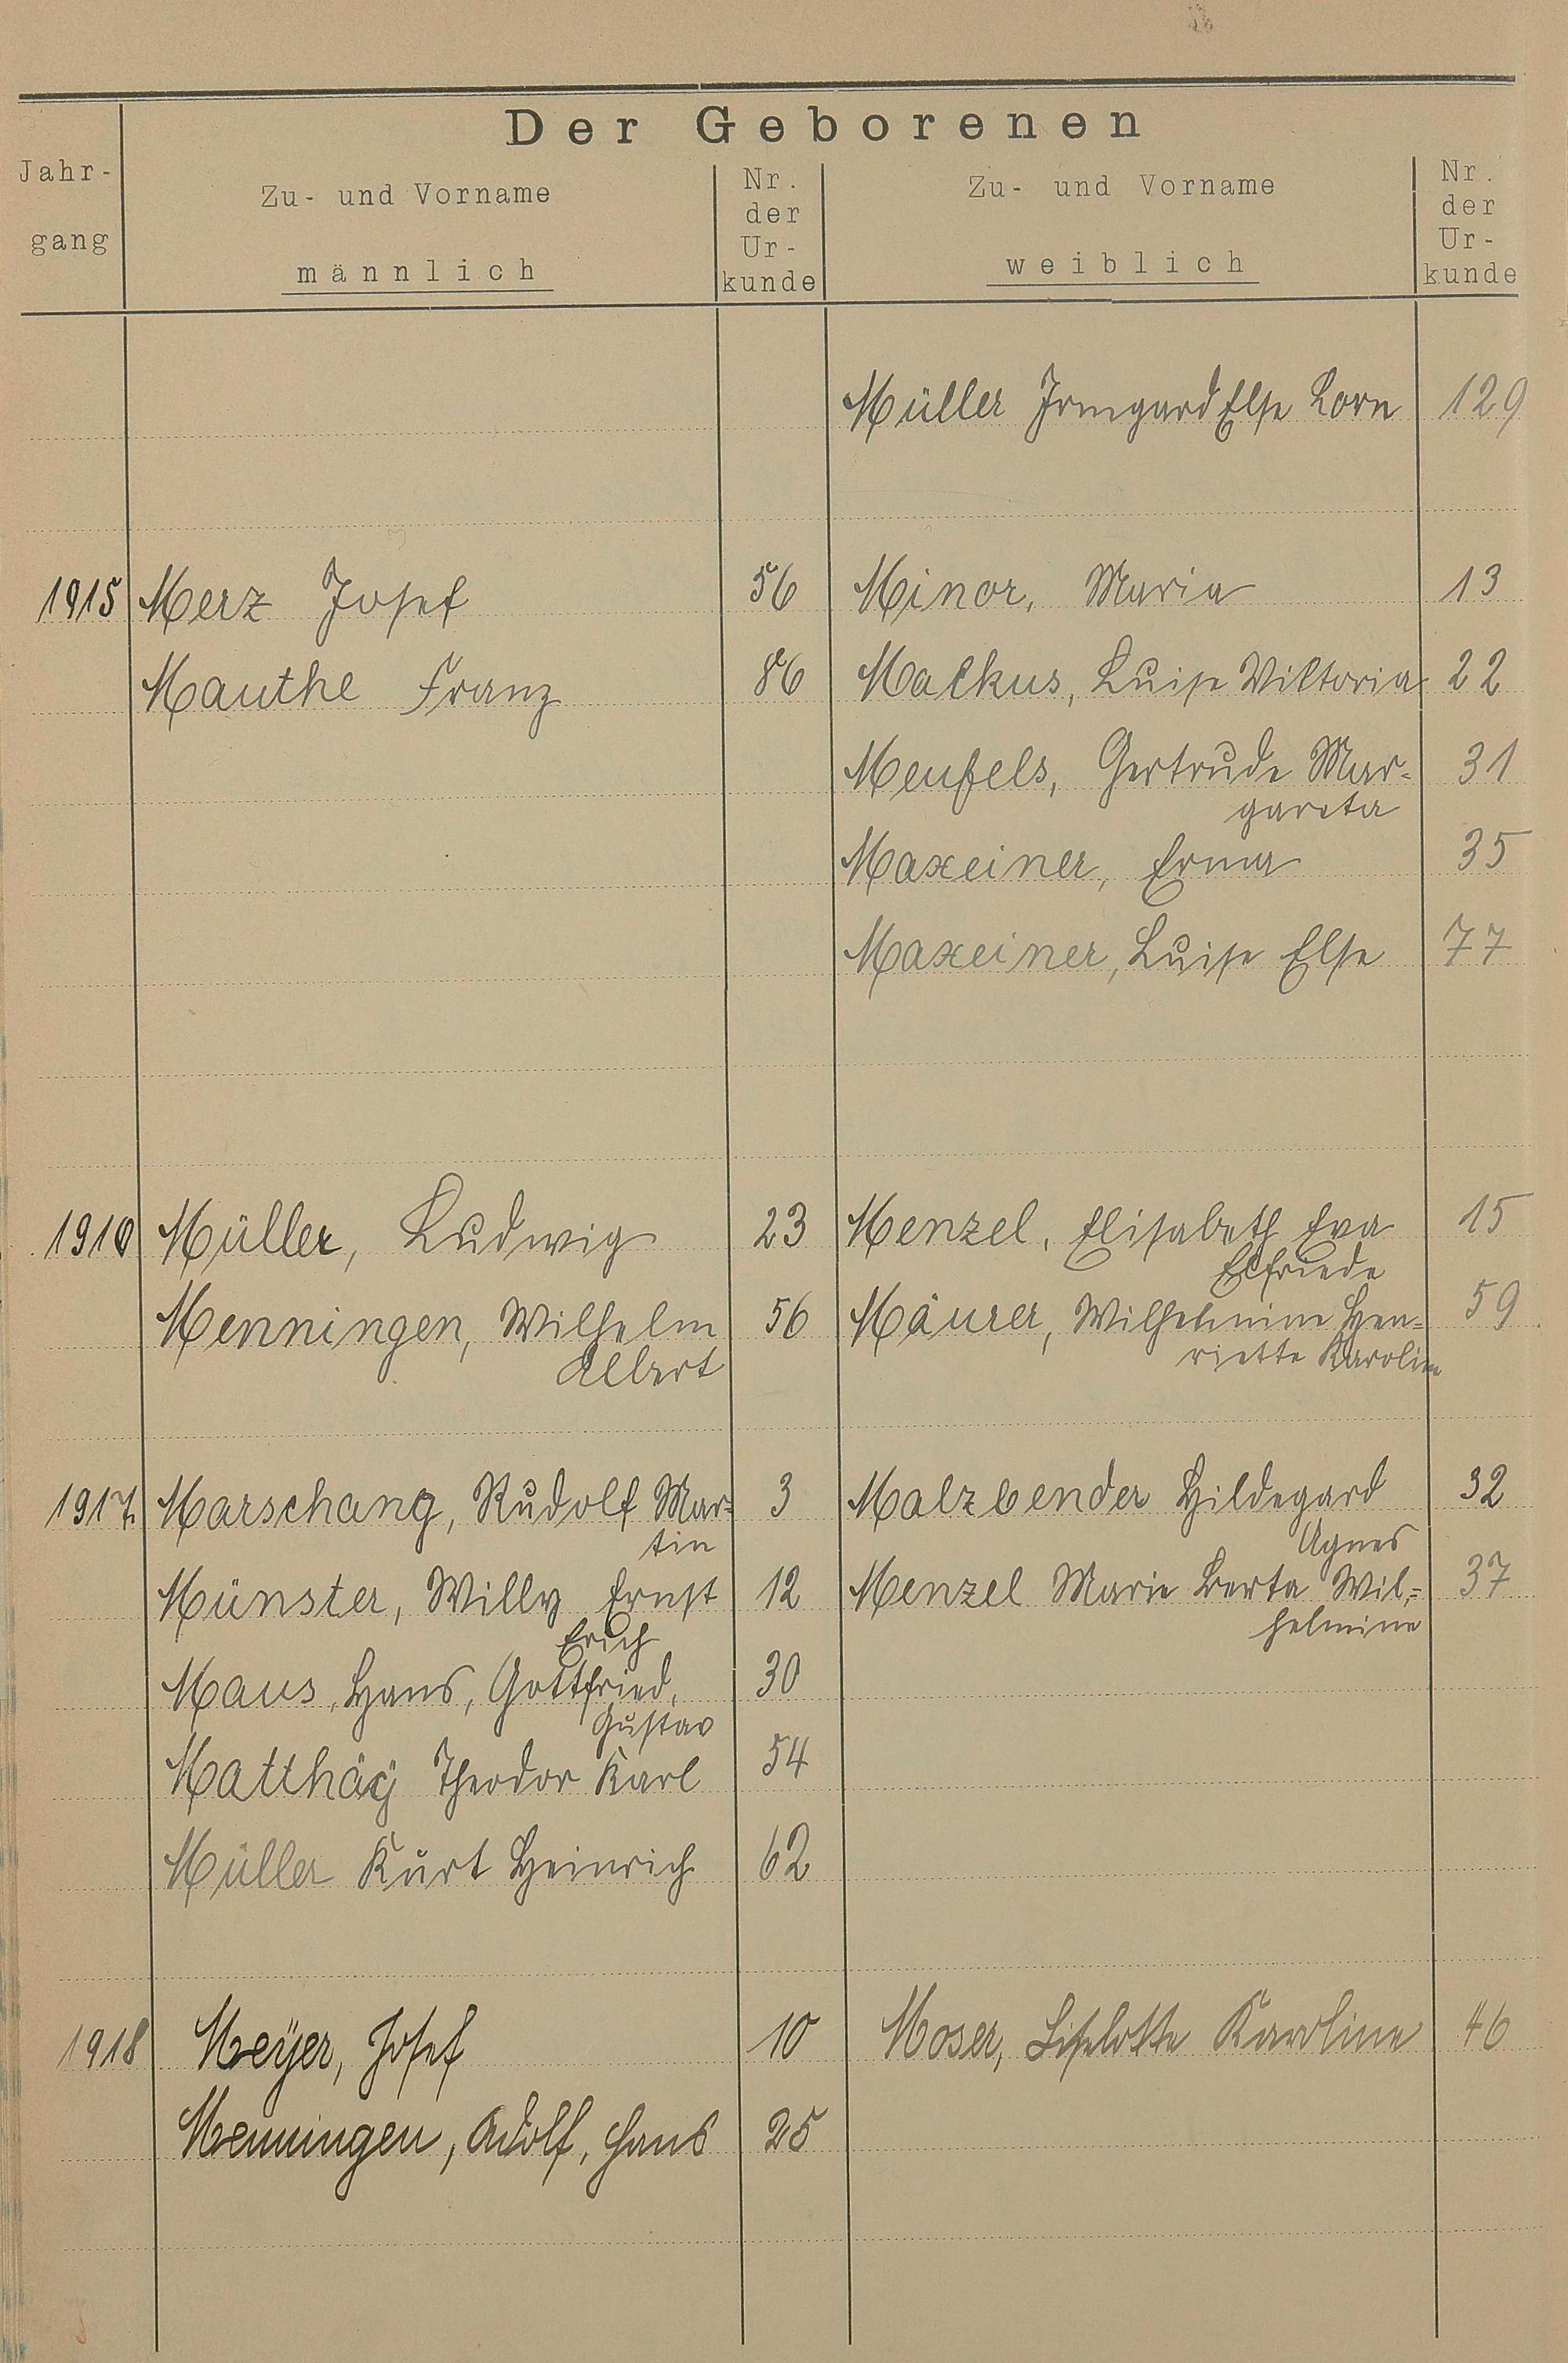 Der Geborenen
Jahr-
gang
Zu- und Vorname
männlich
Nr.
der
Ur-
kunde
Zu- und Vorname
weiblich
Nr.
der
Ur-
kunde
Müller Irmgard Else Lore 129
1915 Merz Josef 56 Minor, Maria 13
Mauthe Franz 86 Malkus, Luise Viktoria 22
Meufels, Gertrude Mar- 31
gareta
Maxeiner, Erna 35
Maxeiner, Luise Else 77
Müller, Ludwig 23 Menzel, Elisabeth Eva 15
Elfriede
Menningen, Wilhelm 56 Mäurer, Wilhelmine Hen= 59
Albert riette Karoline
1917. Marschang, Rudolf Mar= 3 Malzbender Hildegard 32
tin Agnes
Münster, Willy Ernst 12 Menzel Marie Berta Wil= 37
Erich helmine
Maus, Hans, Gottfried, 30
Gustav
Matthäÿ Theodor Karl 54
Müller Kurt Heinrich 62
1918 Meÿer, Josef 10 Moser, Liselotte Karoline 46
Menningen, Adolf, Hans 25